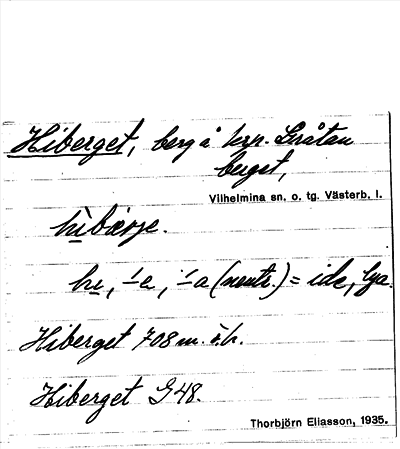 Hiberget, berg å krp. Gråtan
berget,
Vilhelmina sn. o. tg. Västerb. l.
hìbærje.
hi, -́e, -̀a (neutr.) = ide, lya.
Hiberget 708 m. ö.h.
Hiberget G 48.
Thorbjörn Eliasson, 1935.